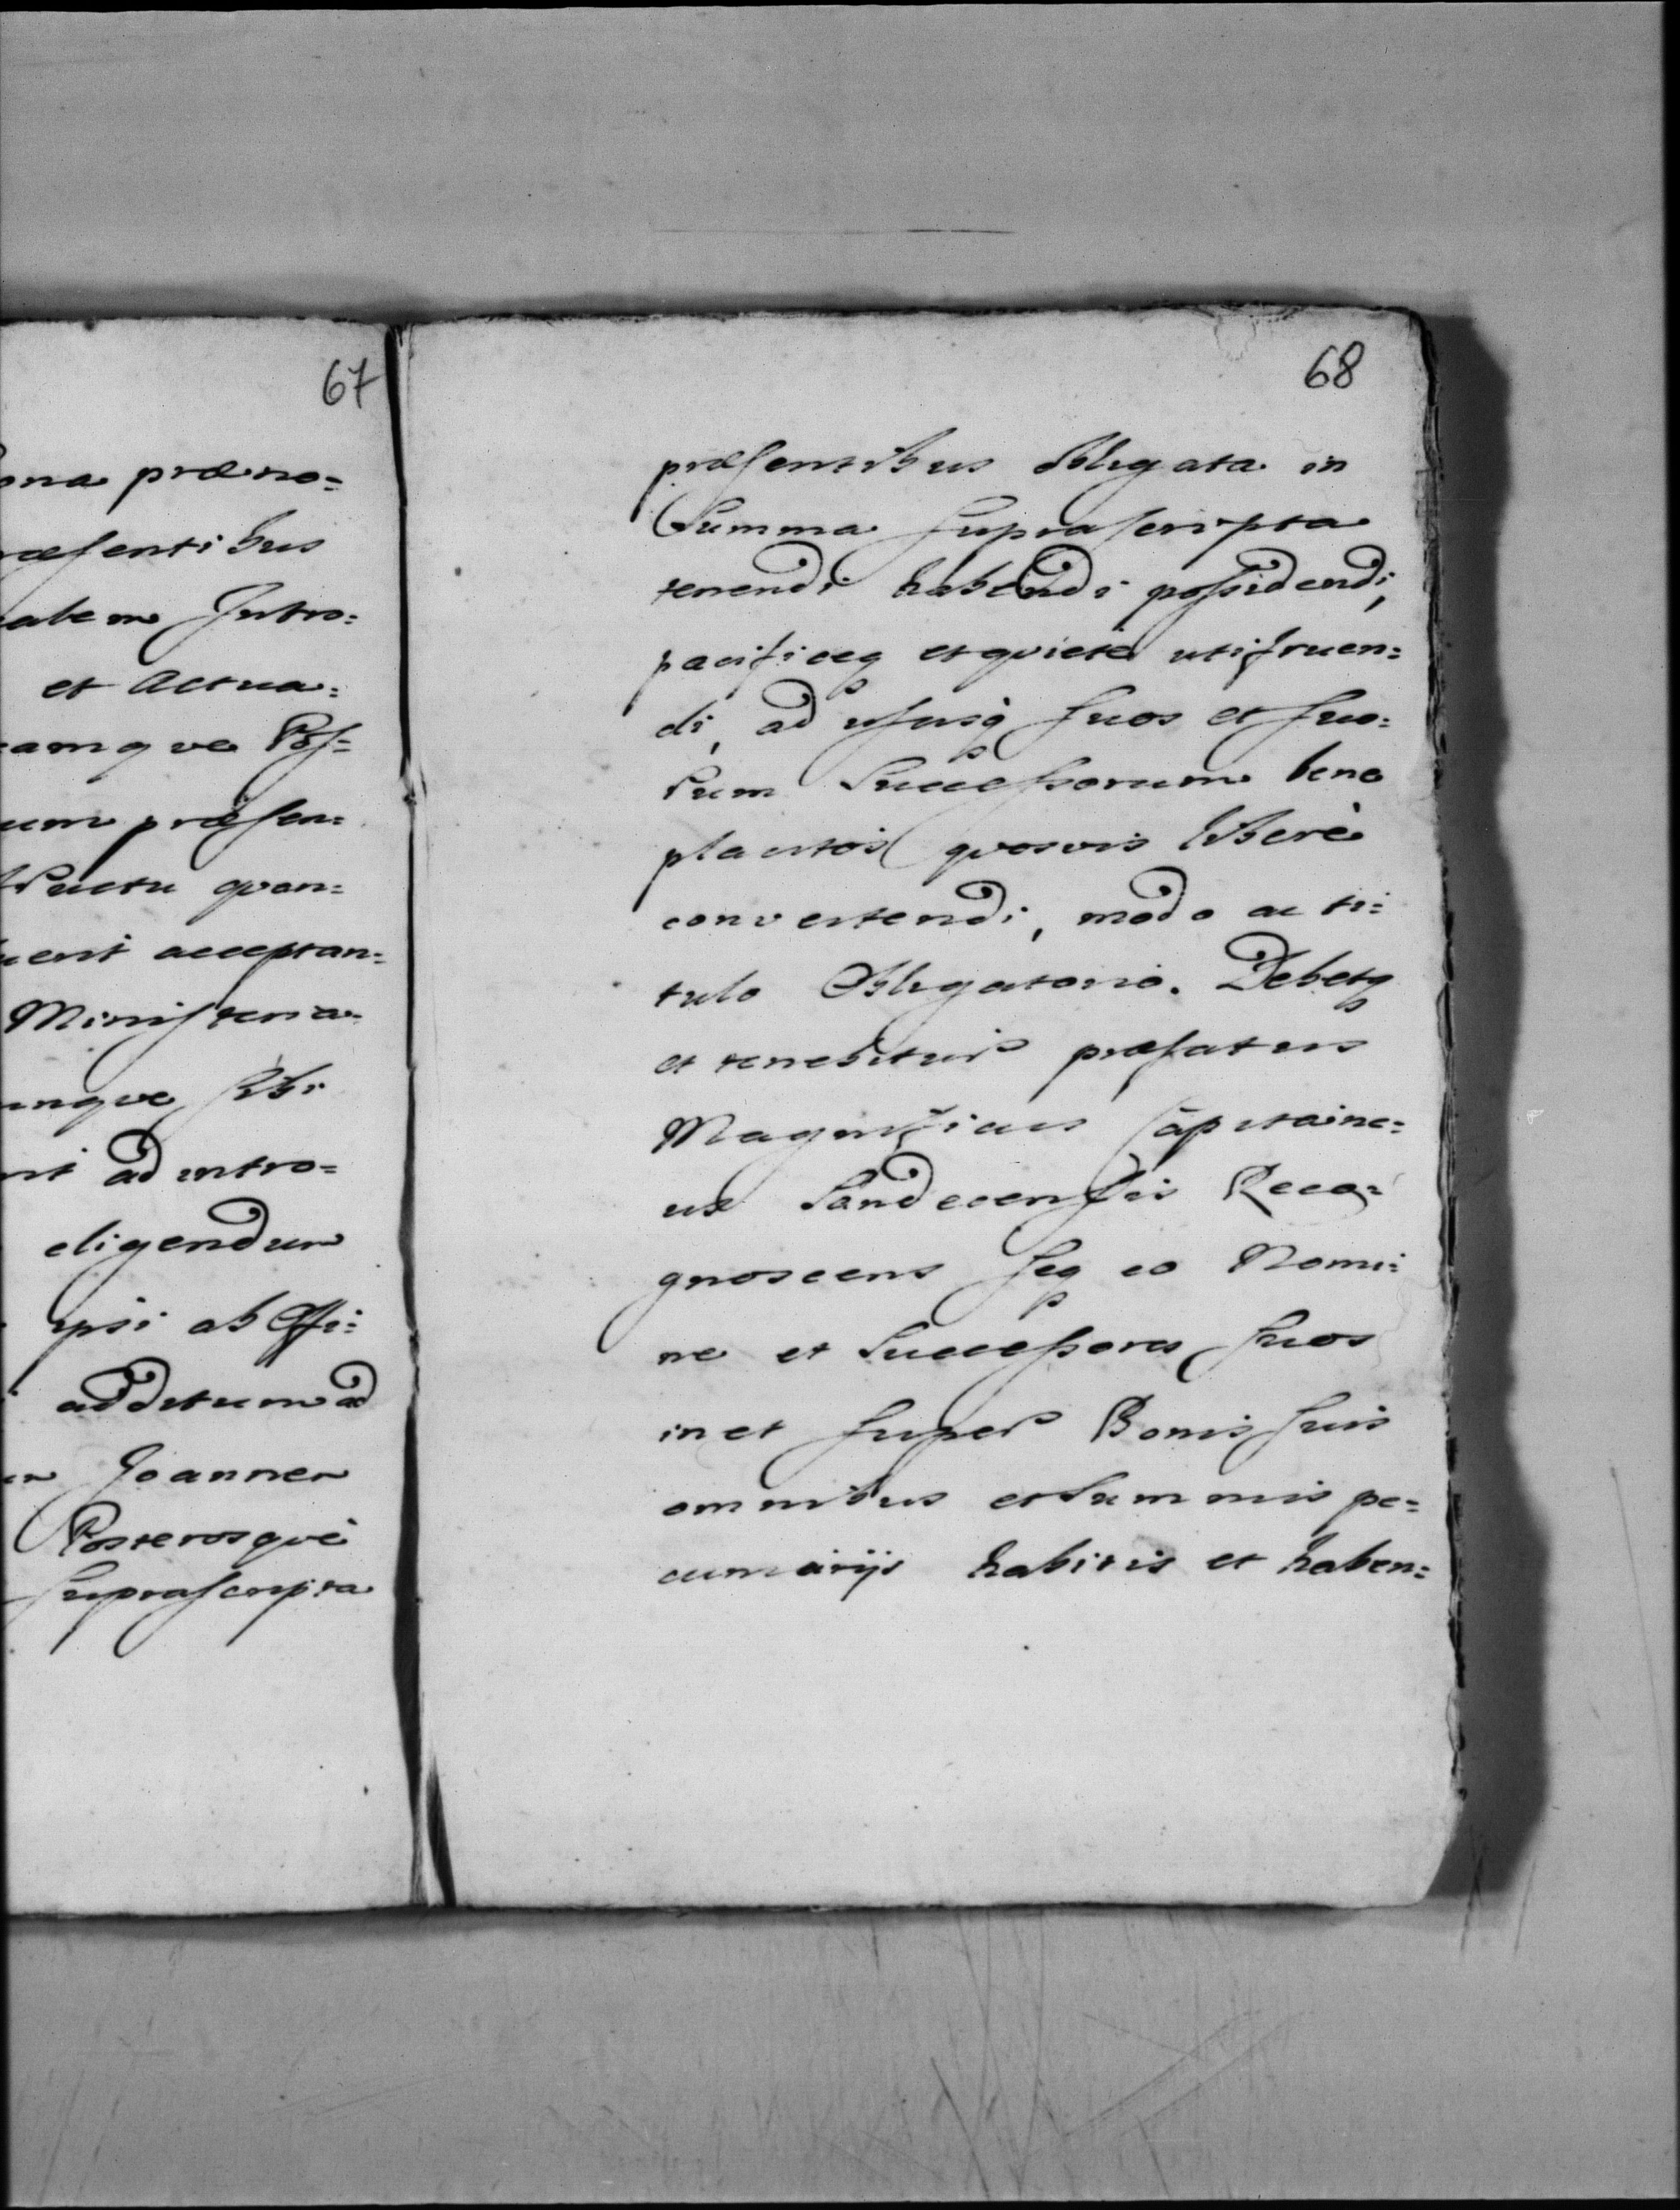 67
ona præno=
ræsentibus
alem Intro:
et Actua:
amque Pos=
um præsen=
structu quan=
uerit acceptan=
Ministeria
unque sibi
nt ad intro=
eligendum
ipsi ab Offi:
additum ad
m Joannem
Posterosqve
suprascripta
68
præsentibus obligata in
Summa suprascripta
tenendi habendi possidendi,
pacificeq et quietè utifruen:
di, ad ususq suos et suo:
rum Successorum bene
placitos quosvis liberè
convertendi, modo ac ti:
tulo Obligatorio. Debetq
et tenebitur præfatus
Magnificus Capitane:
us Sandecensis Reco:
gnoscens seq eo Nomi:
ne et Successores suos
in et super Bonis suis
omnibus et Summis pe=
cuniarijs habitis et haben: